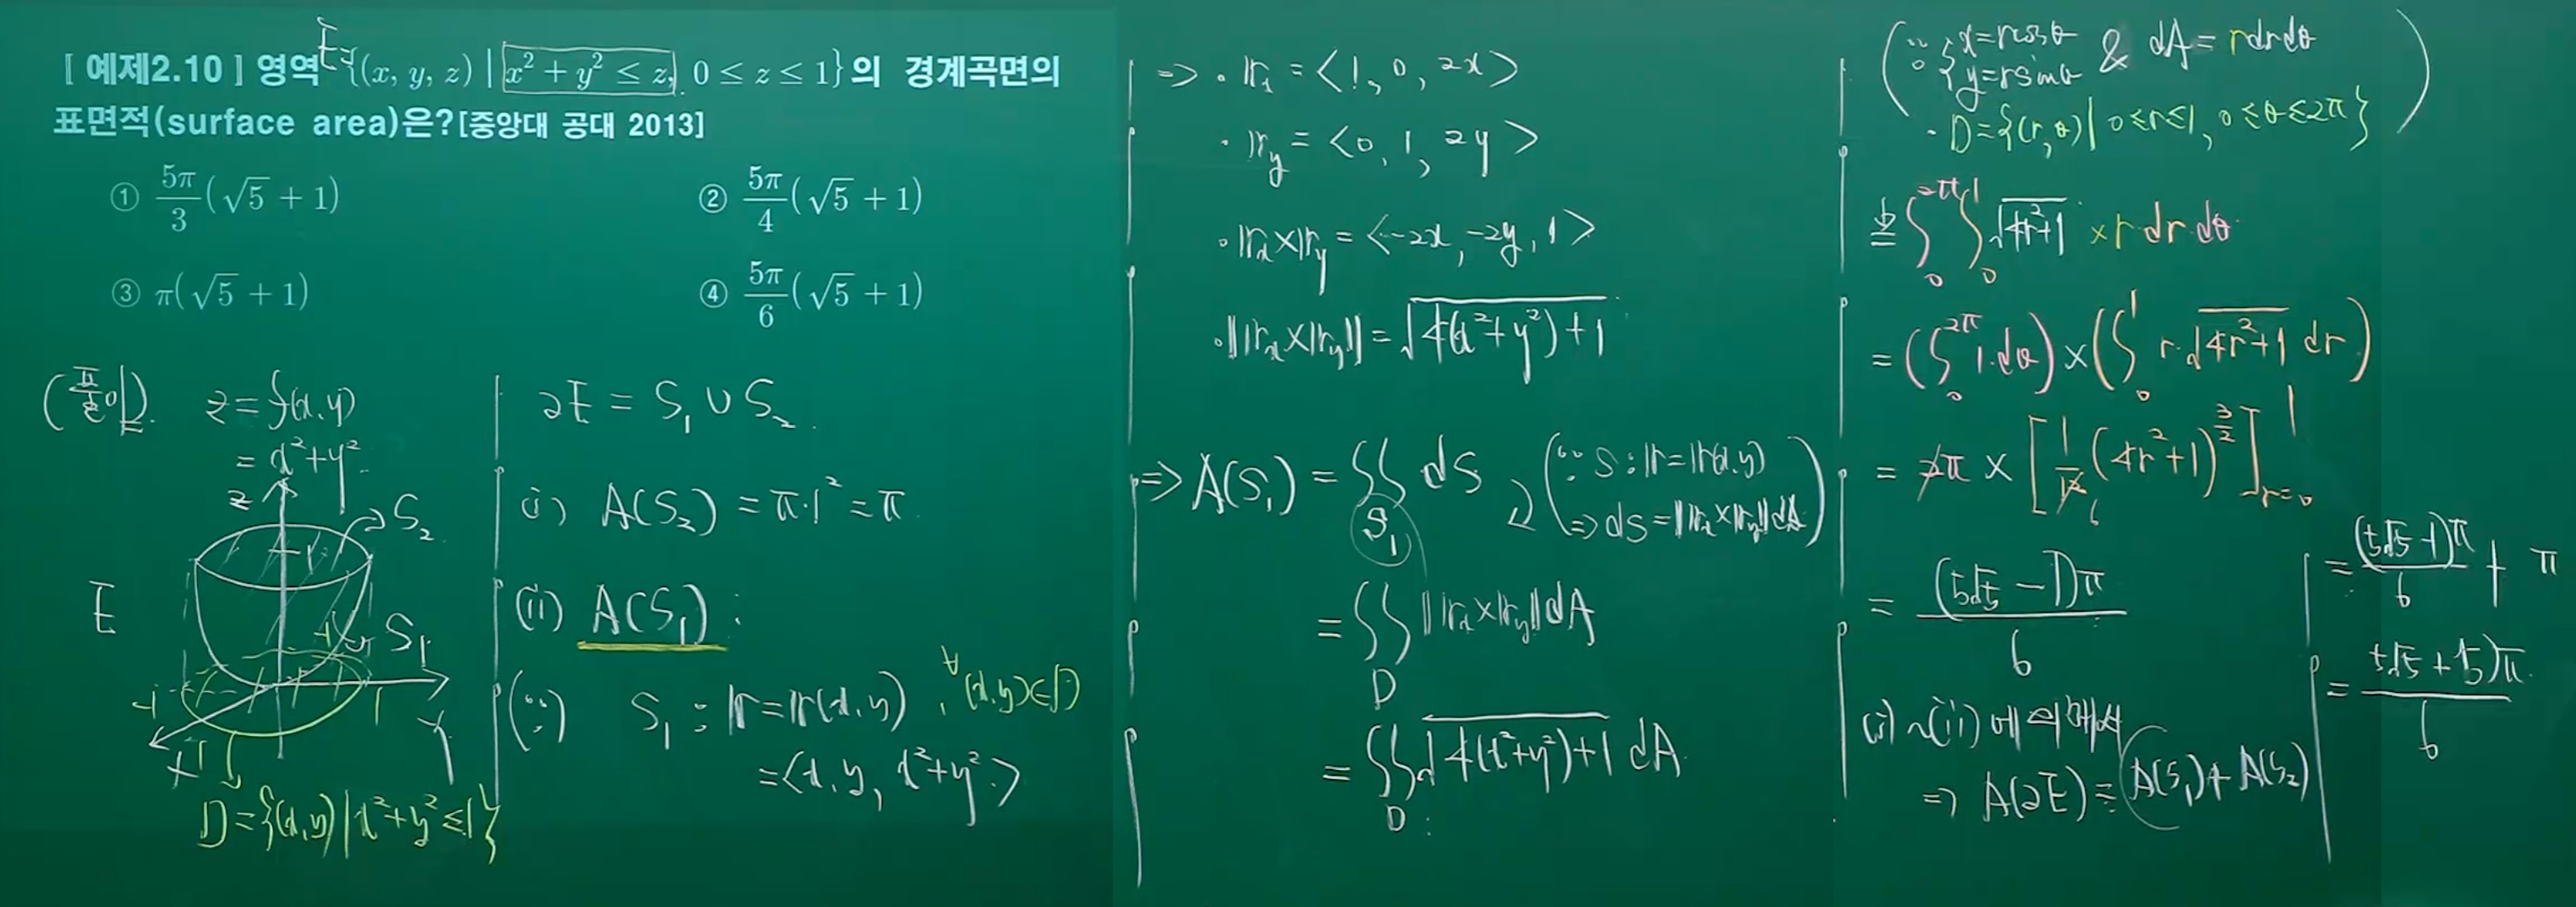 [ 예제2.10 ] 영역 E={(x, y, z) | x² + y² ≤ z, 0 ≤ z ≤ 1}의 경계곡면의
표면적(surface area)은?[중앙대 공대 2013]
① 5π/3 (√5 + 1) ② 5π/4 (√5 + 1)
③ π(√5 + 1) ④ 5π/6 (√5 + 1)
(풀이) z = f(x,y)
= x²+y²
z
S₂
1
E
S₁
1
-1
1
x
1
y
D={(x,y)|x²+y²≤1}
∂E = S₁ ∪ S₂
(i) A(S₂) = π·1² = π
(ii) A(S₁) :
(∵) S₁ : r = r(x,y), ∀(x,y)∈D
= <x, y, x²+y²>
⇒ · rₓ = <1, 0, 2x>
· r_y = <0, 1, 2y>
· rₓ×r_y = <-2x, -2y, 1>
· ||rₓ×r_y|| = √(4(x²+y²)+1)
⇒ A(S₁) = ∬_S₁ dS (∵ S : r = r(x,y)
⇒ dS = ||rₓ×r_y||dA)
= ∬_D ||rₓ×r_y||dA
= ∬_D √(4(x²+y²)+1) dA
(∵ {x=rcosθ
y=rsinθ & dA = rdrdθ
· D={(r,θ)| 0≤r≤1, 0≤θ≤2π})
= ∫₀^2π ∫₀¹ √(4r²+1) × r dr dθ
= (∫₀^2π 1·dθ) × (∫₀¹ r·√(4r²+1) dr)
= 2π × [1/12 (4r²+1)^(3/2)]_r=0^1
6
= (5√5 - 1)π/6
(i)~(ii)에 의해서
⇒ A(∂E) = A(S₁) + A(S₂)
= (5√5 - 1)π/6 + π
= 5√5 + 5)π/6